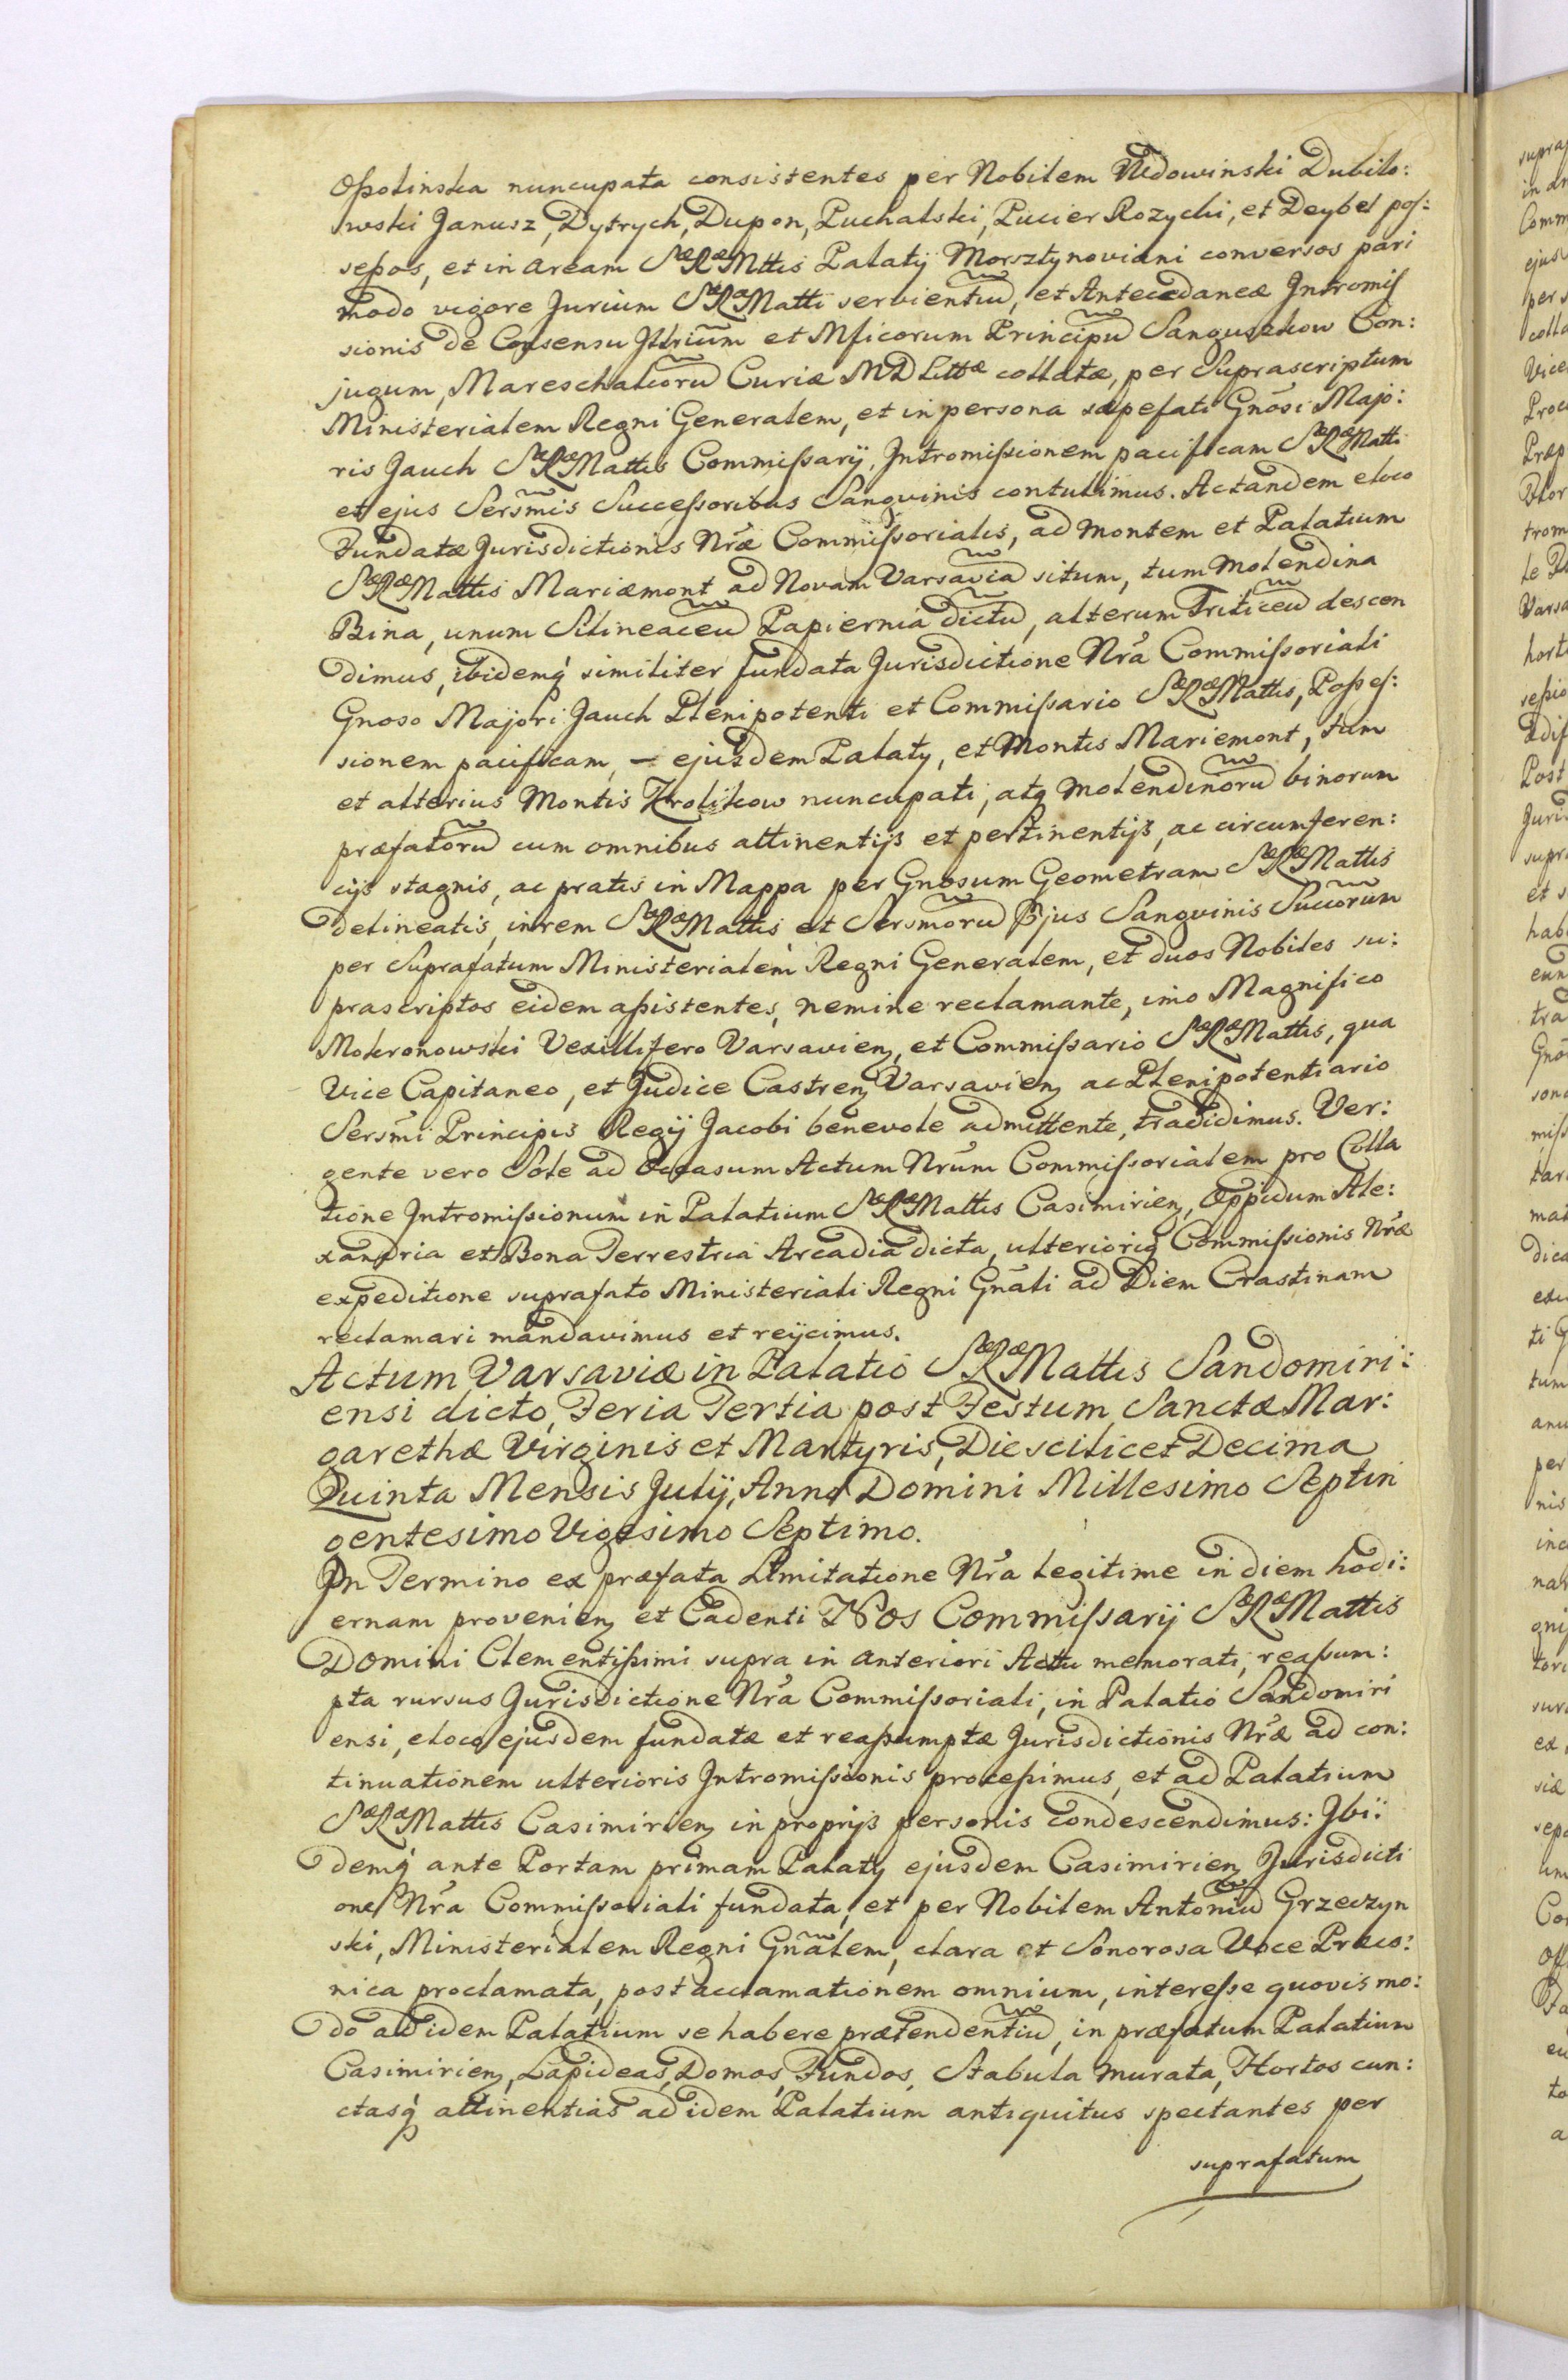 Opolinska nuncupata consistentes per Nobilem Wdowinski Dubilo:
wski Janusz, Dytrych, Dupon, Puchalski, Pucier Rozycki, et Deybel pos:
seßos, et in aream SæRæMttis Palatij Morsztynoviani conversos pari
modo vigore Jurium SæRæMatti servientiū, et Antecedaneæ Intromis
sionis de Consensu Jllriūm et Mficorum Principū Sanguszkow Con:
jugum, Mareschalcorū Curiæ MD Littæ collatæ, per Suprascriptum
Ministerialem Regni Generalem, et in persona sæpefati Gnōsi Majo:
ris Jauch SæRæMattis Commißarij, Intromißionem pacificam SæRæMatti
et ejus Sersm̄is Succeßoribus Sanguinis contulimus. Ac tandem eloco
Fundatæ Jurisdictionis Nr̄æ Commißorialis, ad montem et Palatium
SæRæMattis Mariæmont ad Novam Varsaviā situm, tum molendina
Bina, unum Silineaceū Papiernia dictū, alterum Triticeū descen
dimus, ibidemq́ similiter fundata Jurisdictione Nr̄a Commißoriali
Gnoso Majori Jauch Plenipotenti et Commißario SæRæMattis, Poßes:
sionem pacificam, – ejusdem Palatij, et Montis Mariemont, tum
et alterius Montis Krolikow nuncupati, atq molendinorū binorum
præfatorū cum omnibus attinentijs et pertinentijs, ac circumferen:
cijs stagnis, ac pratis in Mappa per Gnosum Geometram SæRæMattis
delineatis, in rem SæRæMattis et Sersmorū Ejus Sanguinis Succōrum
per Suprafatum Ministerialem Regni Generalem, et duos Nobiles su:
prascriptos eidem aßistentes, nemine reclamante, imo Magnifico
Mokronowski Vexillifero Varsavien, et Commißario SæRæMattis, qua
Vice Capitaneo, et Judice Castren Varsavien ac Plenipotentiario
Sersm̄i Principis Regij Jacobi benevole admittente, tradidimus. Ver:
gente vero Sole ad Occasum Actum Nrūm Commißorialem pro Colla
tione Intromißionum in Palatium SæRæMattis Casimirien, Oppidum Ale:
xandria et Bona Terrestria Arcadia dicta, ulteriorig Commißionis Nr̄æ
expeditione suprafato Ministeriali Regni Gn̄ali ad Diem Crastinam
reclamari mandavimus et reijcimus.
Actum Varsaviæ in Palatio SæRæMattis Sandomiri:
ensi dicto, Feria Tertia post Festum Sanctæ Mar:
garethæ Virginis et Martyris, Die scilicet Decima
Quinta Mensis Julij, Anno Domini Millesimo Septin
gentesimo Vigesimo Septimo.
In Termino ex præfata Limitatione Nr̄a legitime in diem hodi:
ernam provenien et Cadenti Nos Commißarij SæRæMattis
Domini Clementißimi supra in anteriori Actu memorati, reaßum:
pta rursus Jurisdictione Nr̄a Commißoriali, in Palatio Sandomiri
ensi, eloco ejusdem fundatæ et reaßumptæ Jurisdictionis Nr̄æ ad con:
tinuationem ulterioris Intromißionis proceßimus, et ad Palatium
SæRæMattis Casimirien in proprijs personis condescendimus: Ibi:
demq́ ante Portam primam Palatij ejusdem Casimirien Jurisdicti
one Nr̄a Commißoriali fundata, et per Nobilem Antoniū Grzeczyn
ski, Ministerialem Regni Gn̄alem, clara et Sonorosa Voce Præco:
nica proclamata, post acclamationem omnium, intereße quovis mo:
do ad idem Palatium se habere prætendentiū, in præfatum Palatium
Casimirien, Lapideas, Domos, Fundos, Stabula murata, Hortos cun:
ctasq́ attinentias ad idem Palatium antiquitus spectantes per
suprafatum